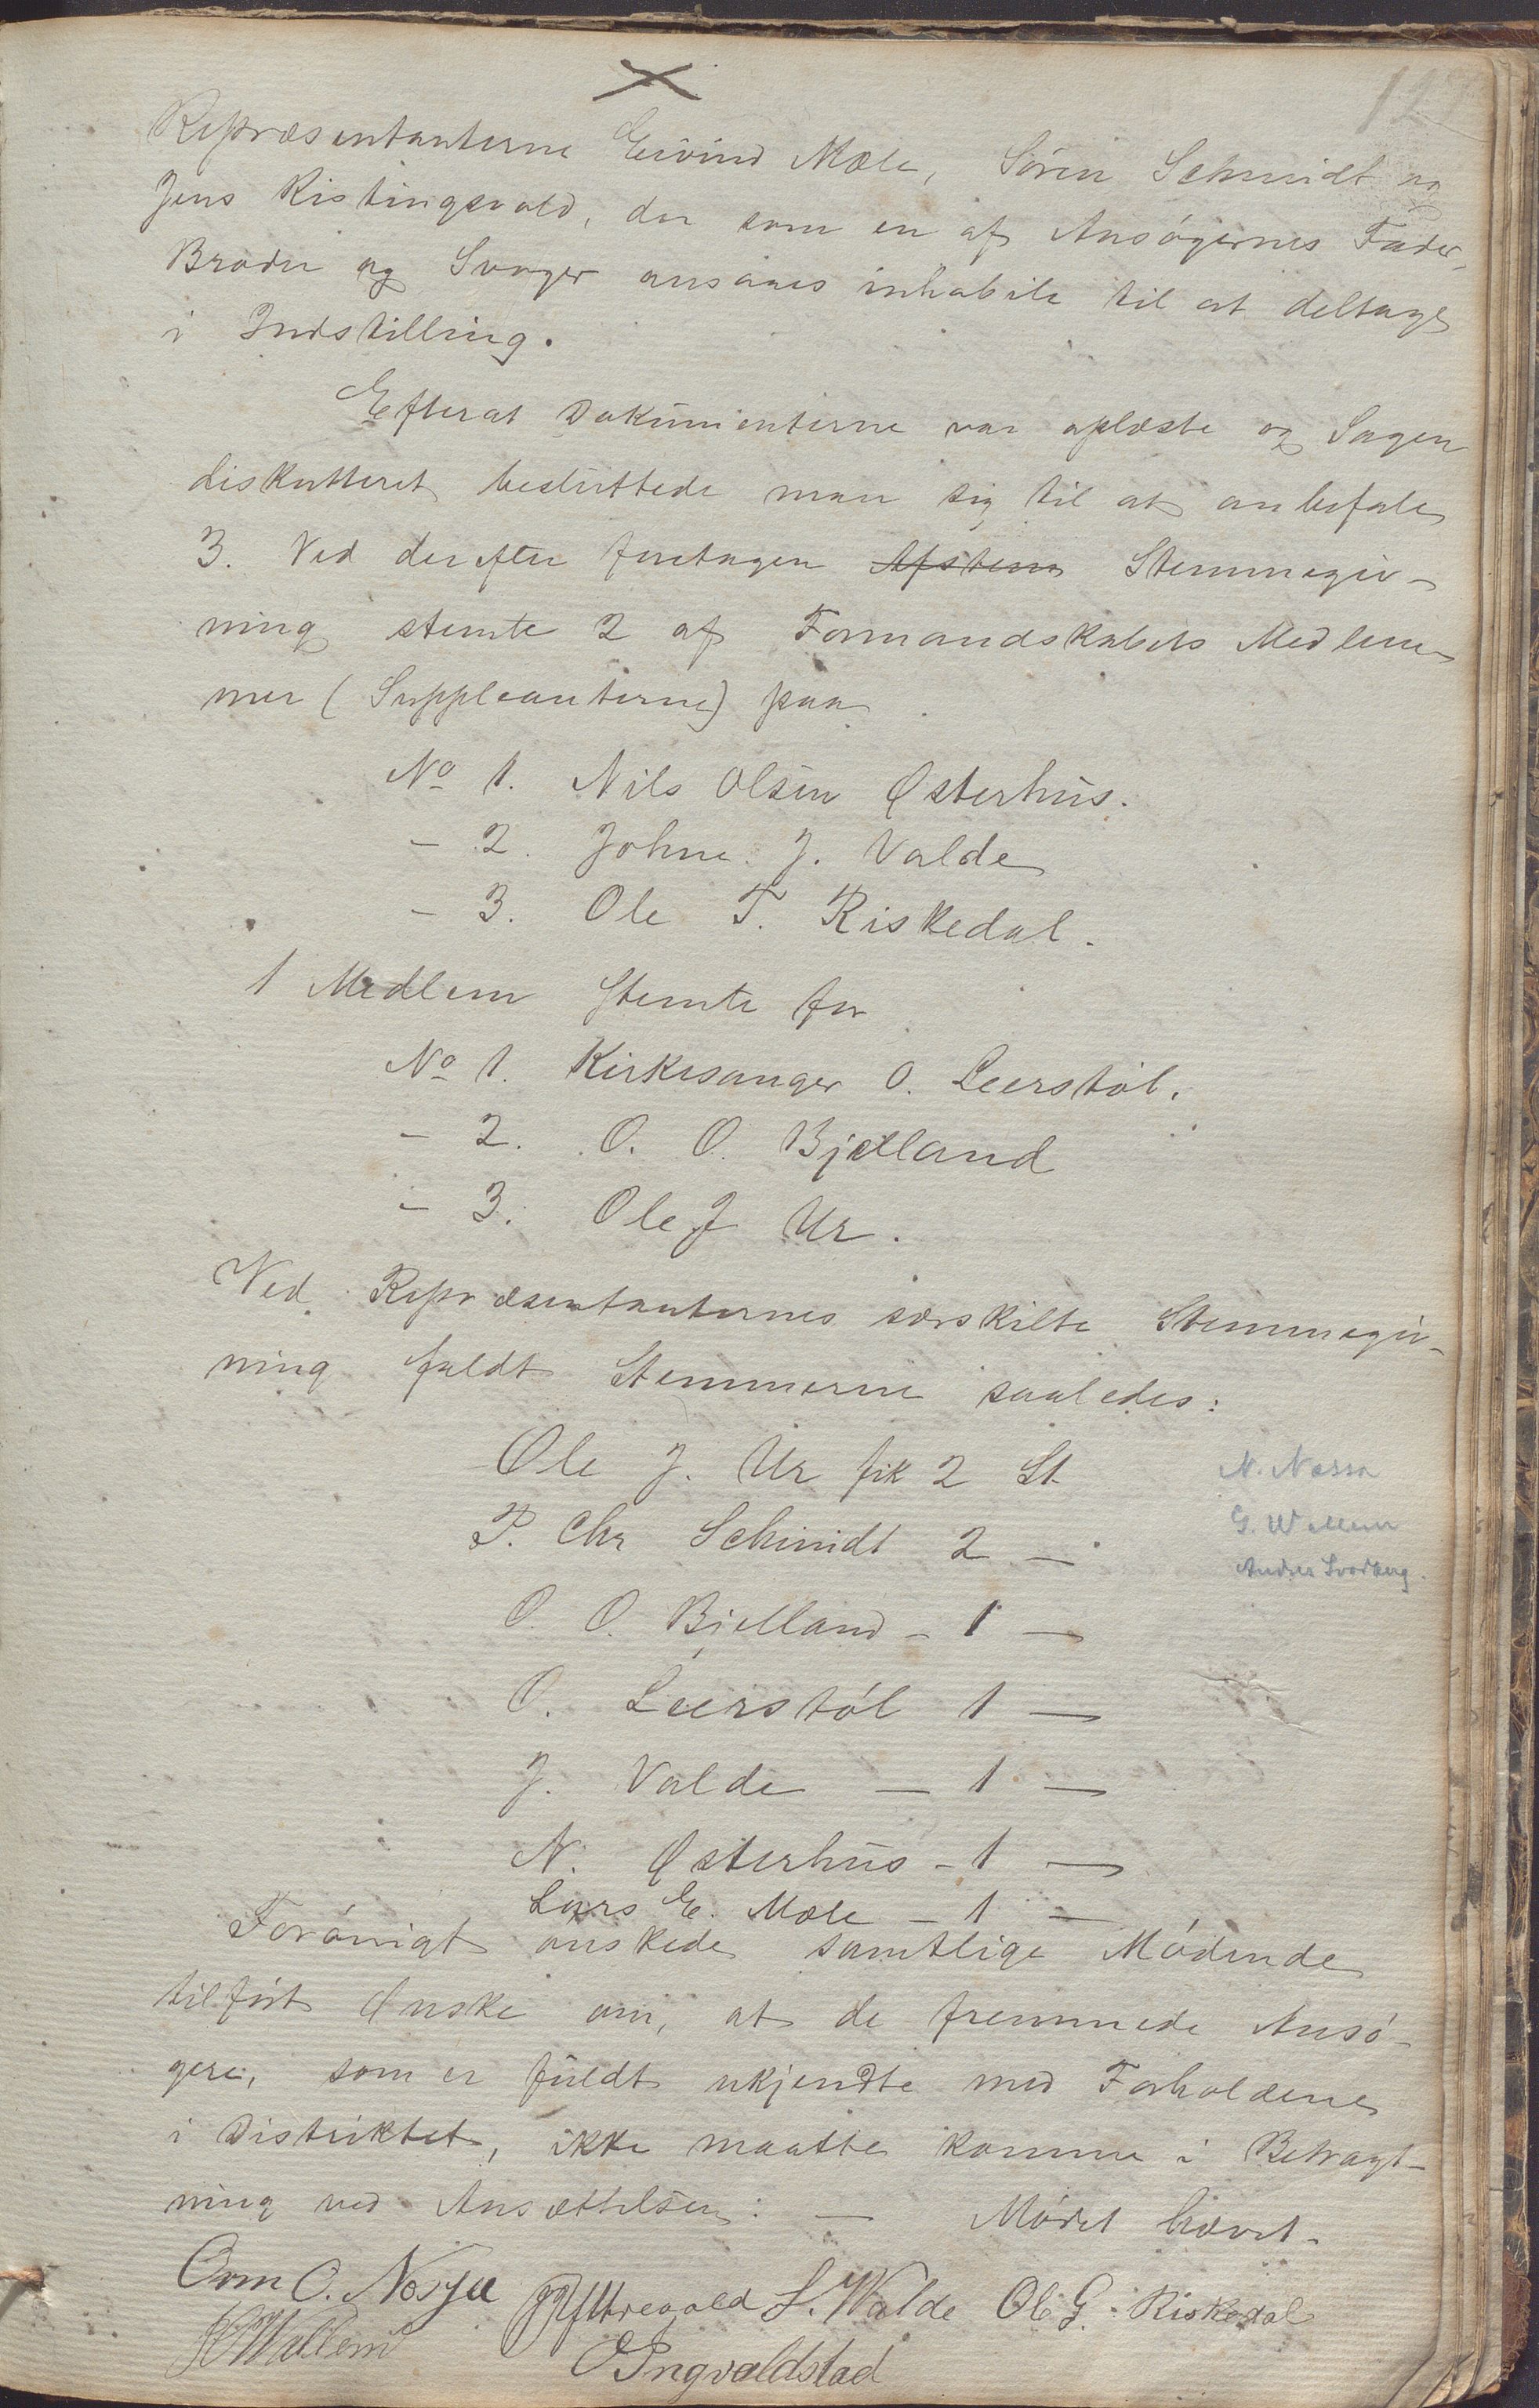 Repræsentanterne Eivind Mæle, Sören Schmidt og
Jens Ristingsvold, der som en af Ansögernes Fader,
Broder og Svoger ansaaes inhabile til at deltage
i Indstilling.
Efterat Dokumenterne var oplæste og Sagen
diskutteret besluttede man sig til at anbefale
3. Ved derefter foretagen Afstem Stemmegiv-
ning stemte 2 af Formandskabets Medlem-
mer (Suppleanterne) paa
No 1. Nils Olsen Østerhus.
- 2. Johne J. Valde
- 3. Ole T. Riskedal.
1 Medlem stemte for
No 1. Kirkesanger O. Leerstöl.
- 2. O. O. Bjelland
- 3. Ole J Ur.
Ved Repræsentanternes særskilte Stemmegiv-
ning faldt Stemmerne saaledes:
Ole J. Ur fik 2 St.
P. Chr Schmidt 2 —
O. O. Bjelland - 1 —
O. Leerstöl 1 —
J. Valde — 1 —
N. Østerhus - 1 —
Lars E. Mæle - 1 —
N. Nessa
G. Wallem
Andres Svadberg.
Forövrigt önskede samtlige Mödende
tilfört Önske om, at de fremmede Ansö-
gere, som er fuldt ukjendte med Forholdene
i Distriktet, ikke maatte komme i Betragt-
ning ved Ansættelsen. — Mödet hævet.
Orm O. Nosja S. Walde Ole G. Riskedal
Wallem O Ingvaldstad